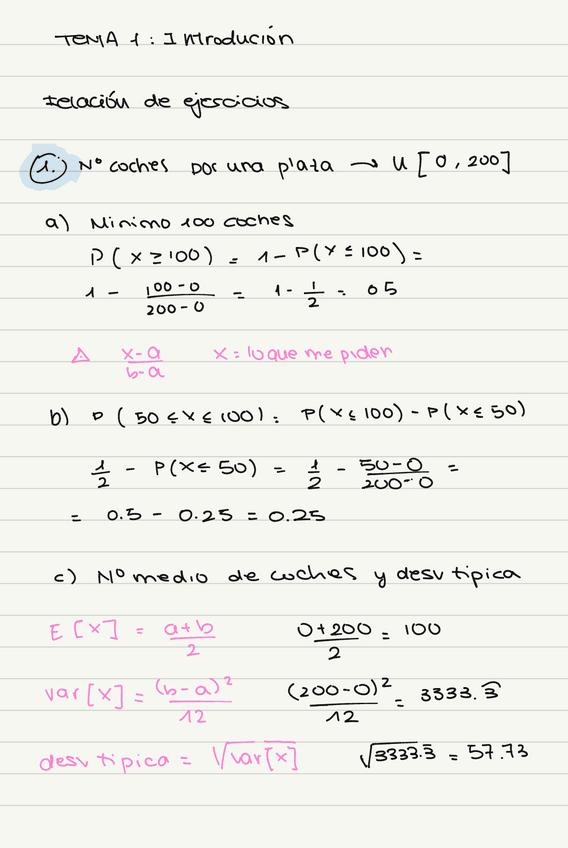 TEMA 1 : Introdución
Relación de ejercicios
1. Nº coches por una plata → U [0, 200]
a) Minimo 100 coches
P ( X ≥ 100 ) = 1 - P(X ≤ 100) =
1 - \frac{100-0}{200-0} = 1 - \frac{1}{2} = 05
△ \frac{x-a}{b-a} x = lo que me piden
b) P ( 50 ≤ X ≤ 100) = P(X ≤ 100) - P(X ≤ 50)
\frac{1}{2} - P(X ≤ 50) = \frac{1}{2} - \frac{50-0}{200-0} =
= 0.5 - 0.25 = 0.25
c) Nº medio de coches y desv tipica
E [X] = \frac{a+b}{2} \frac{0+200}{2} = 100
var [X] = \frac{(b-a)^2}{12} \frac{(200-0)^2}{12} = 3333.\widehat{3}
desv tipica = \sqrt{var[X]} \sqrt{3333.\bar{3}} = 57.73